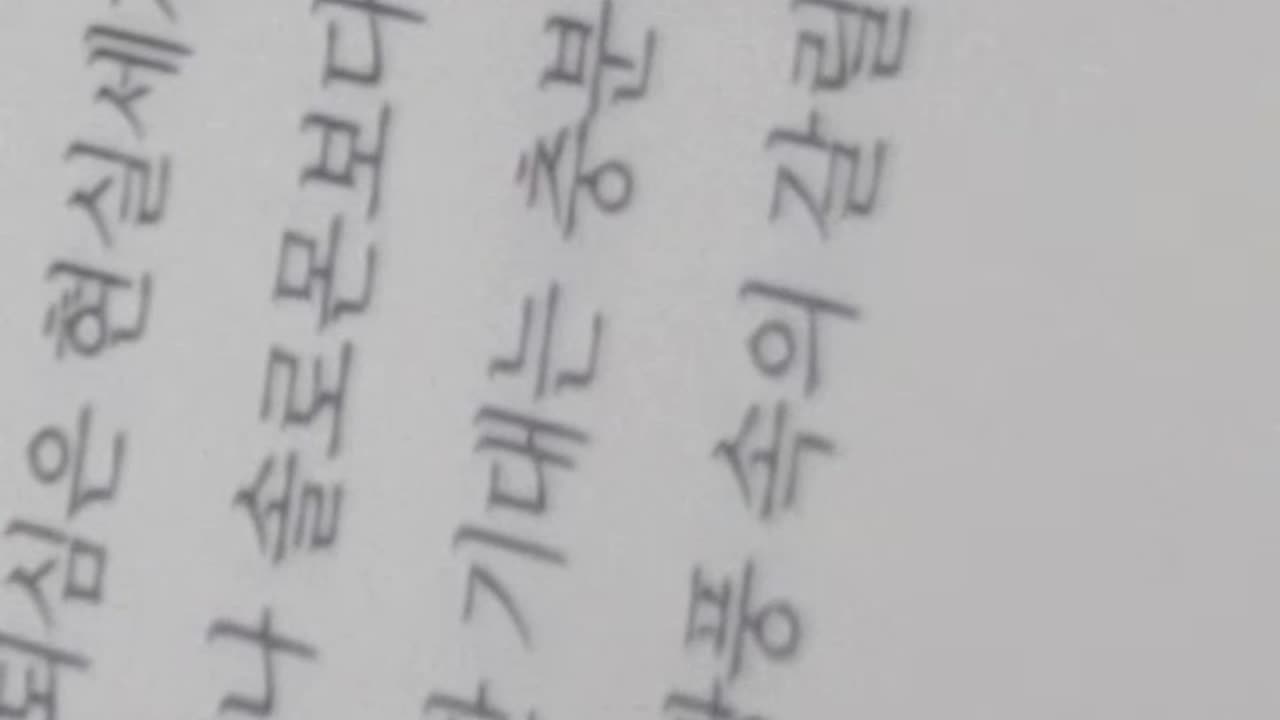 심은 현실세
나 솔로몬보다
기대는 충분
풍 속의 갈릴